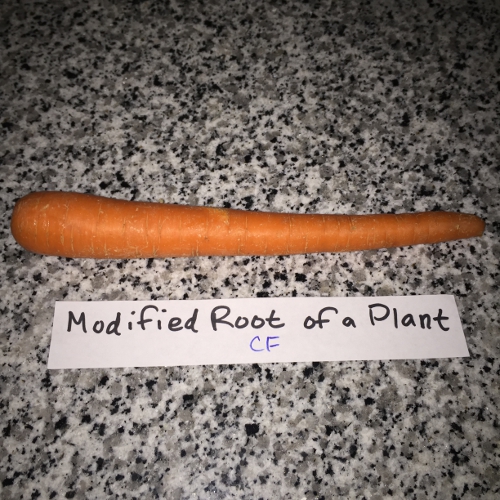 Modified Root of a Plant
CF